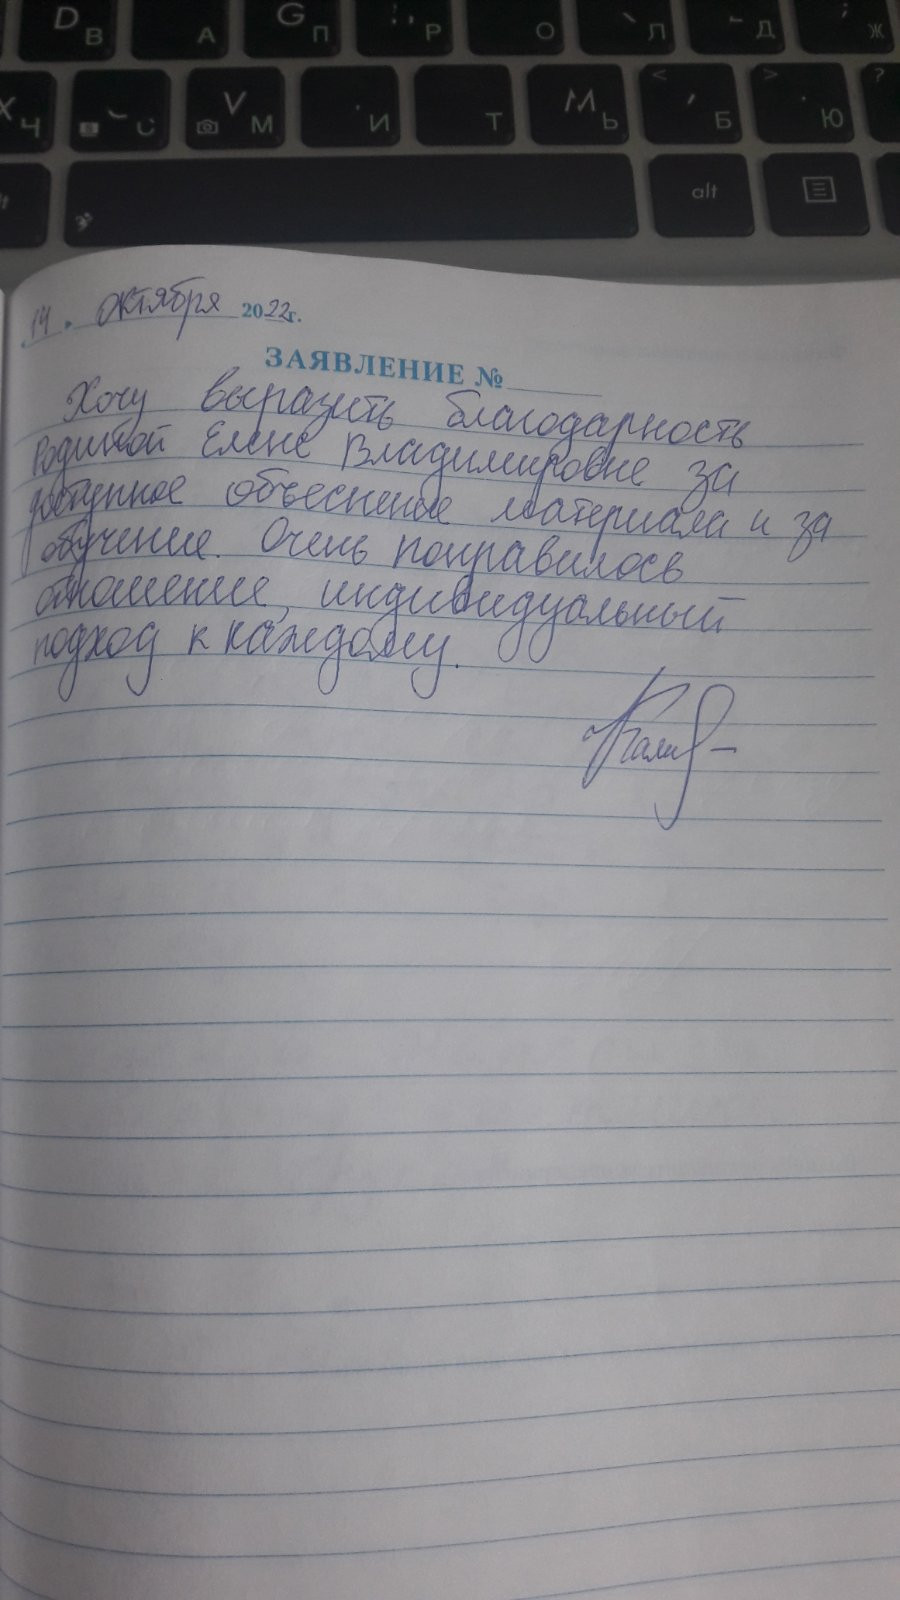 D В
А
G П
Р
О
Л
Д
; Ж
Х Ч
С
V М
И
Т
М Ь
< Б
> Ю
?
alt
14. октября 2022г.
ЗАЯВЛЕНИЕ №
Хочу выразить благодарность
Родиной Елене Владимировне за
доступное объеснение материала и за
обучение. Очень понравилось
отношение, индивидуальный
подход к каждому.